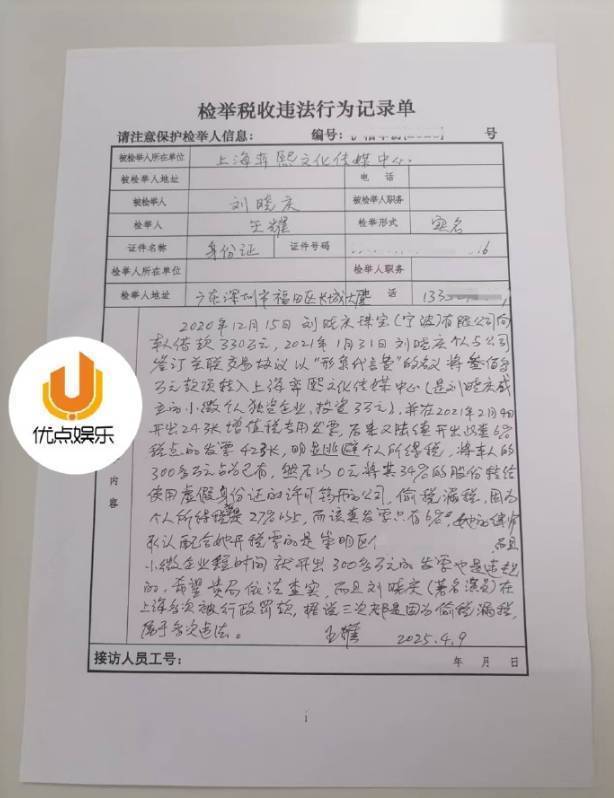 检举税收违法行为记录单
请注意保护检举人信息： 编号： 号
被检举人所在单位 上海弈熙文化传媒中心.
被检举人地址 电 话
被检举人 刘晓庆 被检举人职务
检举人 王耀 检举形式 实名
证件名称 身份证 证件号码 16
检举人所在单位 检举人职务
检举人地址 广东深圳市福田区长城大厦 话 133
2020年12月15日刘晓庆珠宝(宁波)有限公司向
本人借款330万元，2021年1月31日刘晓庆个人与公司
签订关联交易协议以“形象代言费”的名义将叁佰多
万元款项转入上海弈熙文化传媒中心(是刘晓庆成
立的小微个人独资企业，投资3万元)，并在2021年2月4日
开出24张增值税专用发票，后来又陆续开出这类6%
税点的发票42张，明显逃避个人所得税，将本人的
300多万元占为己有，然后以0元将其34%的股份转给
使用虚假身份证的许可 的公司，偷税漏税，因为
个人所得税 27%以上，而该类发票只有6%，她的律师
承认配合她开税票的是崇明区个 而且
小微企业短时间就开出300多万元的发票也是违规
的，希望贵局依法查实，而且刘晓庆(著名演员)在
上海多次被行政罚款，据说三次都是因为偷税漏税，
属于多次违法。
王耀 2025.4.9
内
容
接访人员工号： 年 月 日
1
优点娱乐